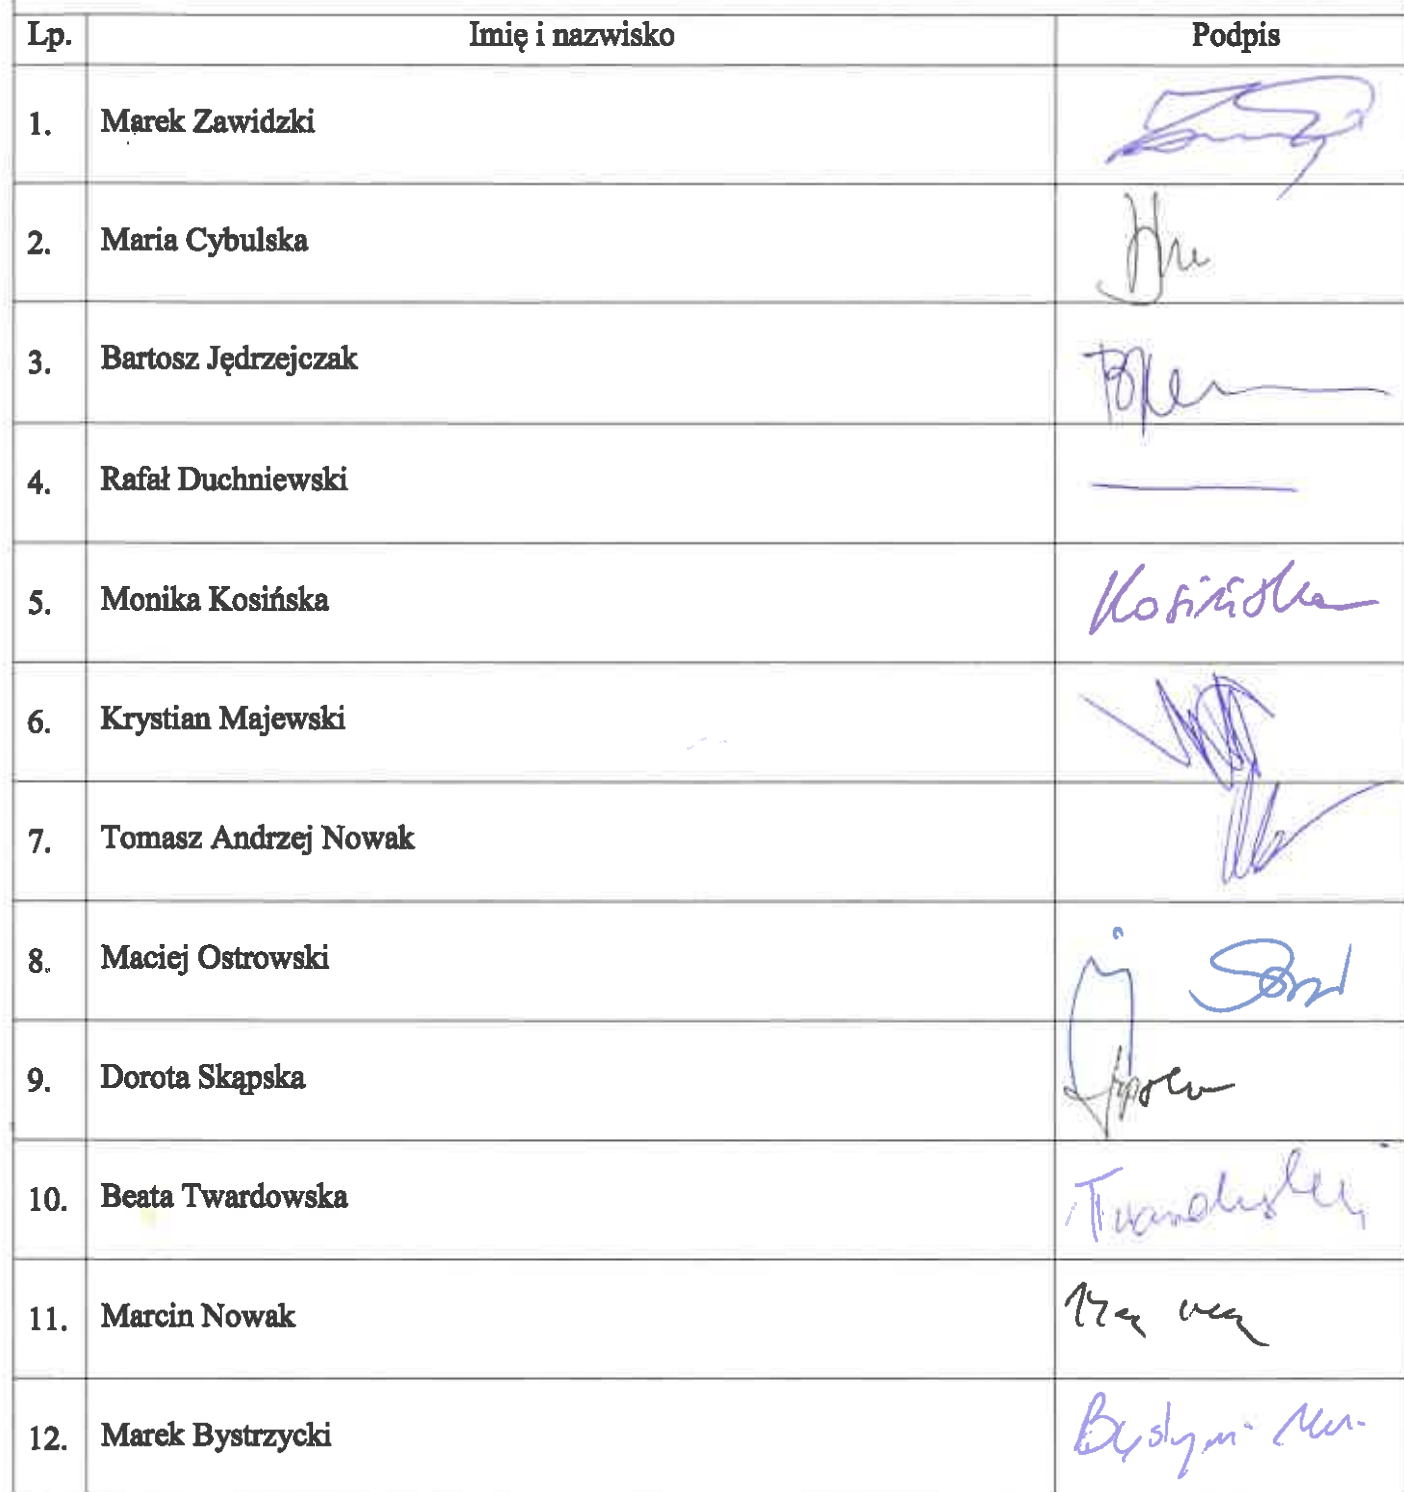 Lp. Imię i nazwisko Podpis
1. Marek Zawidzki
2. Maria Cybulska
3. Bartosz Jędrzejczak
4. Rafał Duchniewski
5. Monika Kosińska Kosińska
6. Krystian Majewski
7. Tomasz Andrzej Nowak
8. Maciej Ostrowski
9. Dorota Skąpska
10. Beata Twardowska
11. Marcin Nowak
12. Marek Bystrzycki